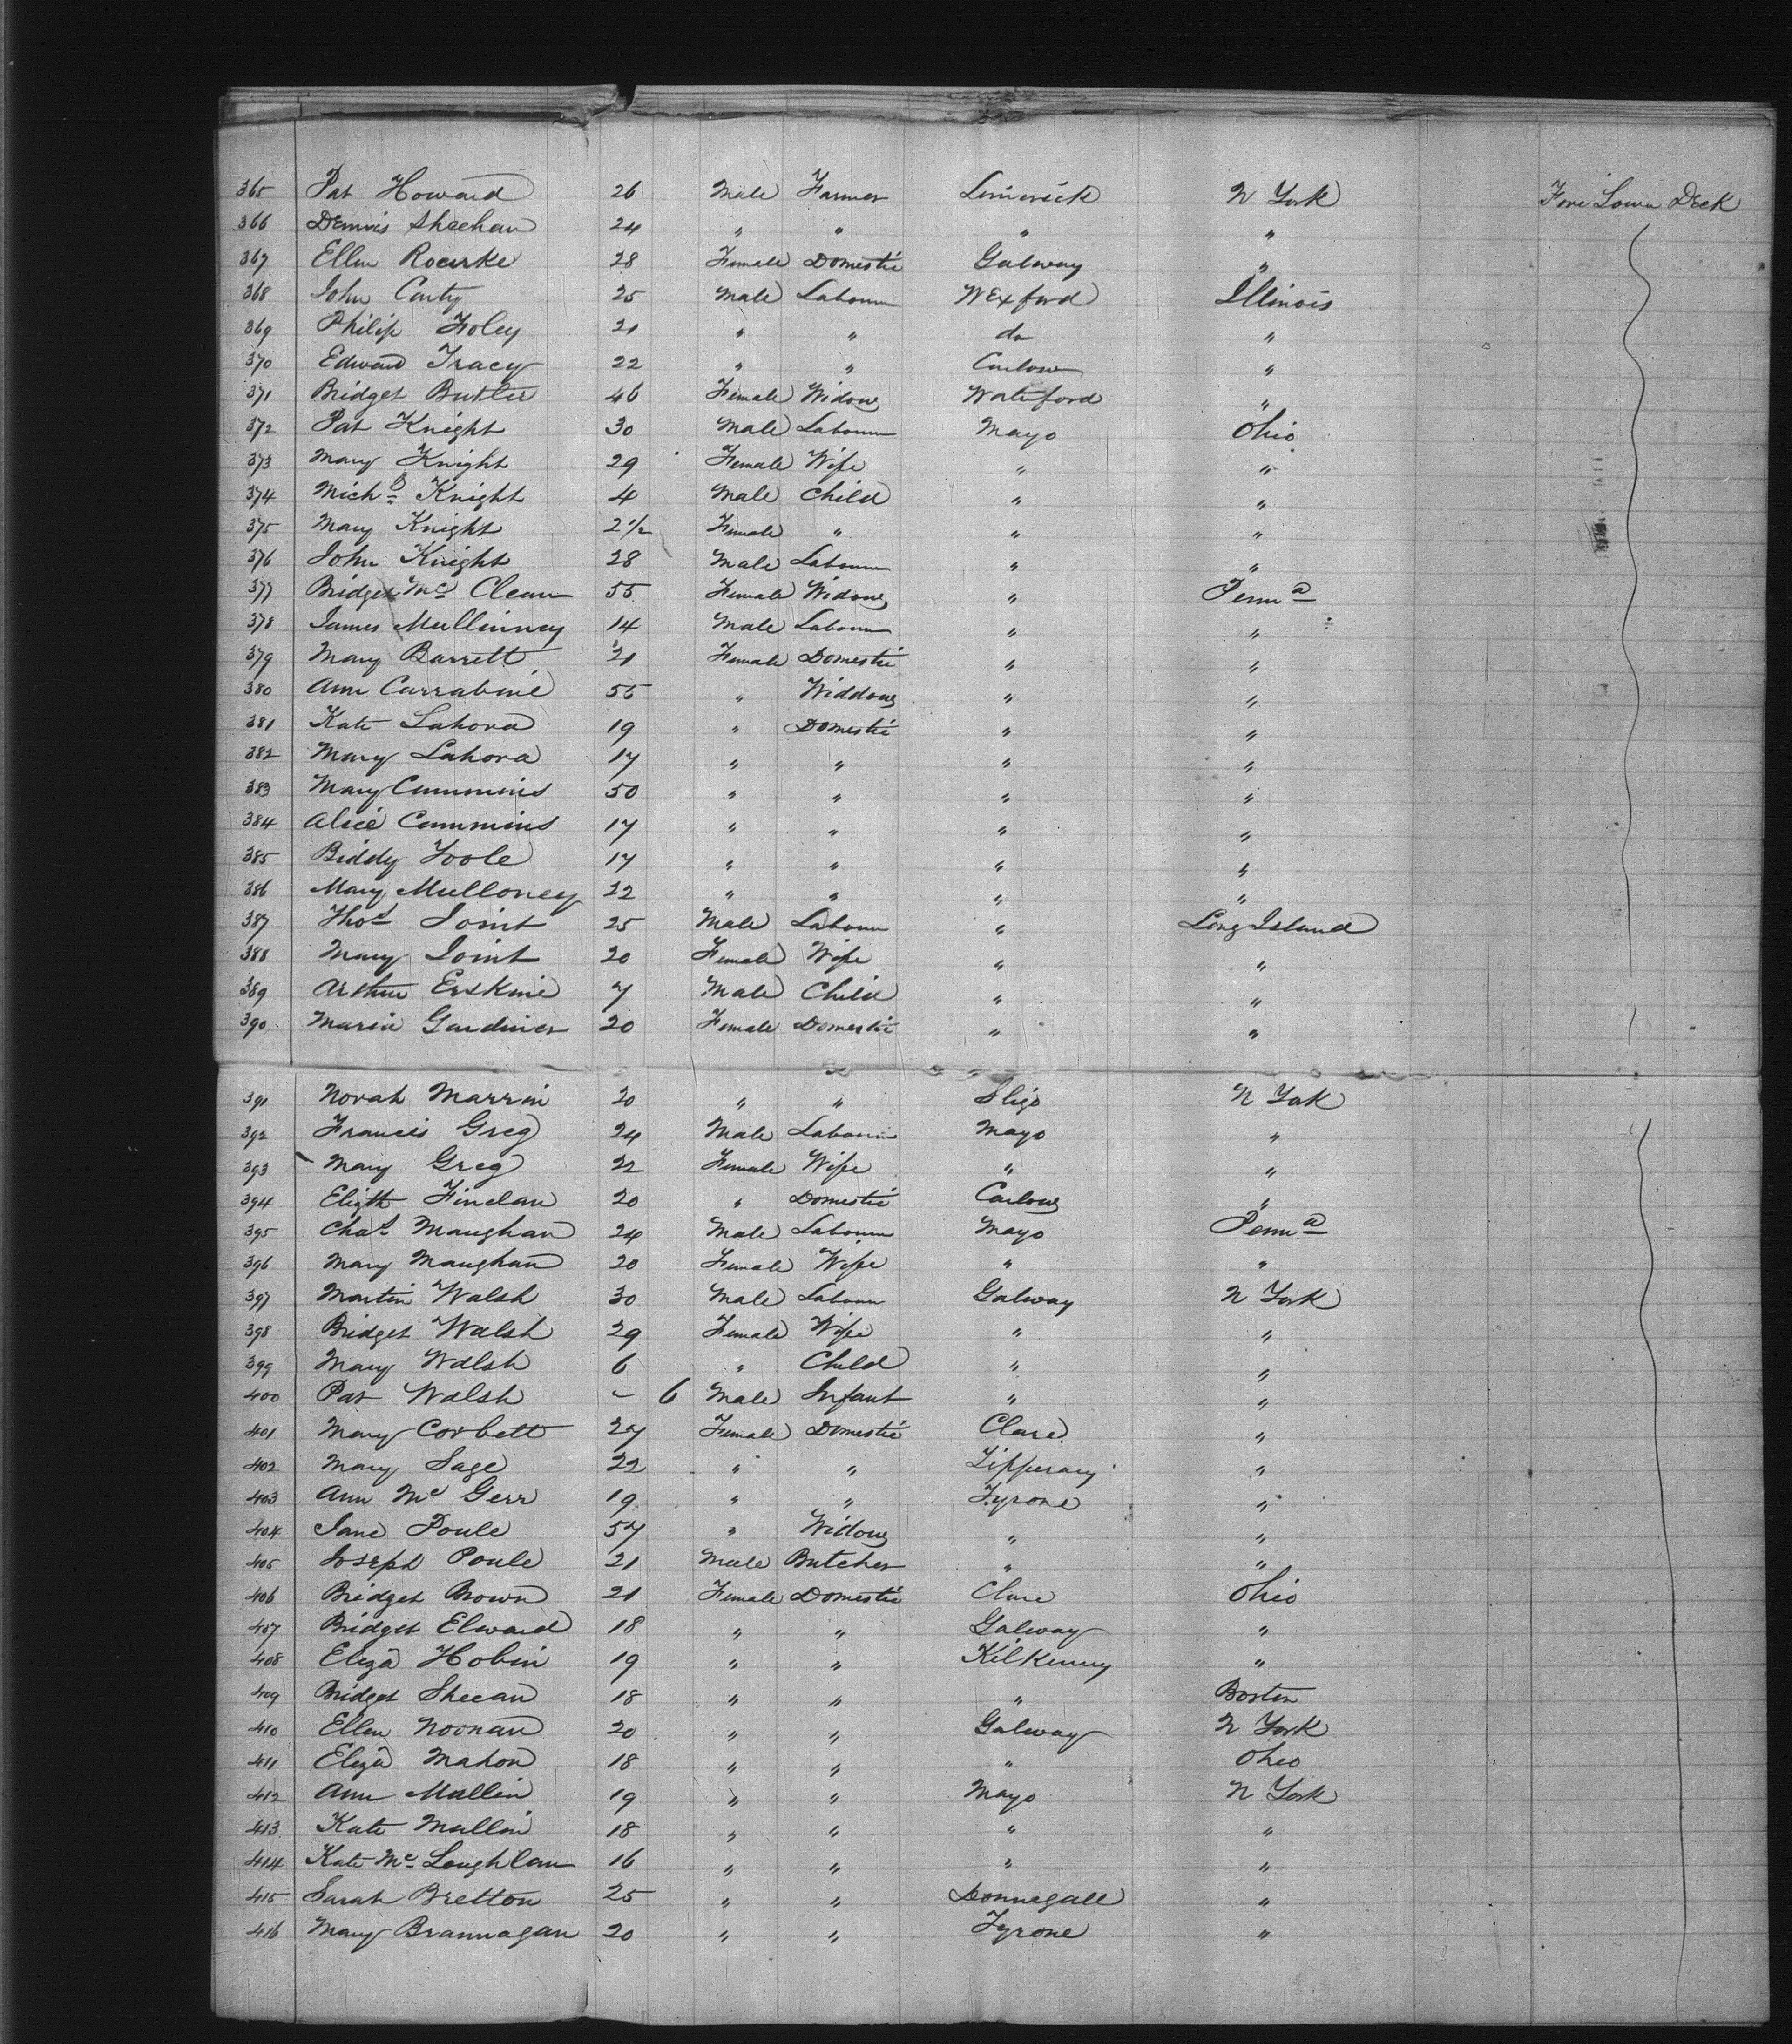 365 Pat Howard 26 Male Farmer Limerick N York Fore Lower Deck
366 Dennis Sheehan 24 " " " "
367 Ellen Rourke 28 Female Domestic Galway "
368 John Carty 25 Male Labourer WExford Illinois
369 Philip Foley 21 " " do "
370 Edward Tracy 22 " " Carlow "
371 Bridget Butler 46 Female Widow Waterford "
372 Pat Knight 30 Male Labourer Mayo Ohio
373 Mary Knight 29 Female Wife " "
374 Michl Knight 4 Male Child " "
375 Mary Knight 2 1/2 Female " " "
376 John Knight 28 Male Labourer " "
377 Bridget Mc Clean 55 Female Widow " Penna
378 James Mullinney 14 Male Labourer " "
379 Mary Barrett 21 Female Domestic " "
380 Ann Carrabine 55 " Widdow " "
381 Kate Lahora 19 " Domestic " "
382 Mary Lahora 17 " " " "
383 Mary Cummins 50 " " " "
384 Alice Cummins 17 " " " "
385 Biddy Toole 17 " " " "
386 Mary Mulloney 22 " " " "
387 Thos Joint 25 Male Labourer " Long Island
388 Mary Joint 20 Female Wife " "
389 Arthur Erskine 7 Male Child " "
390 Maria Gardiner 20 Female Domestic " "
391 Norah Marrin 20 " " Sligo N York
392 Francis Greg 24 Male Labourer Mayo "
393 Mary Greg 22 Female Wife " "
394 Elizth Finelan 20 " Domestic Carlow "
395 Chas Maughan 24 Male Labourer Mayo Penna
396 Mary Maughan 20 Female Wife " "
397 Martin Walsh 30 Male Labourer Galway N York
398 Bridget Walsh 29 Female Wife " "
399 Mary Walsh 6 " Child " "
400 Pat Walsh - 6 Male Infant " "
401 Mary Corbett 27 Female Domestic Clare "
402 Mary Sage 22 " " Tipperary "
403 Ann Mc Gerr 19 " " Tyrone "
404 Jane Poule 57 " Widow " "
405 Joseph Poule 21 Male Butcher " "
406 Bridget Brown 21 Female Domestic Clare Ohio
407 Bridget Elward 18 " " Galway "
408 Eliza Hobin 19 " " Kilkenny "
409 Bridget Sheean 18 " " " Boston
410 Ellen Noonan 20 " " Galway N York
411 Eliza Mahon 18 " " " Ohio
412 Ann Mullin 19 " " Mayo N York
413 Kate Mullin 18 " " " "
414 Kate Mc Loughlan 16 " " " "
415 Sarah Bretton 25 " " Donnegall "
416 Mary Brannagan 20 " " Tyrone "